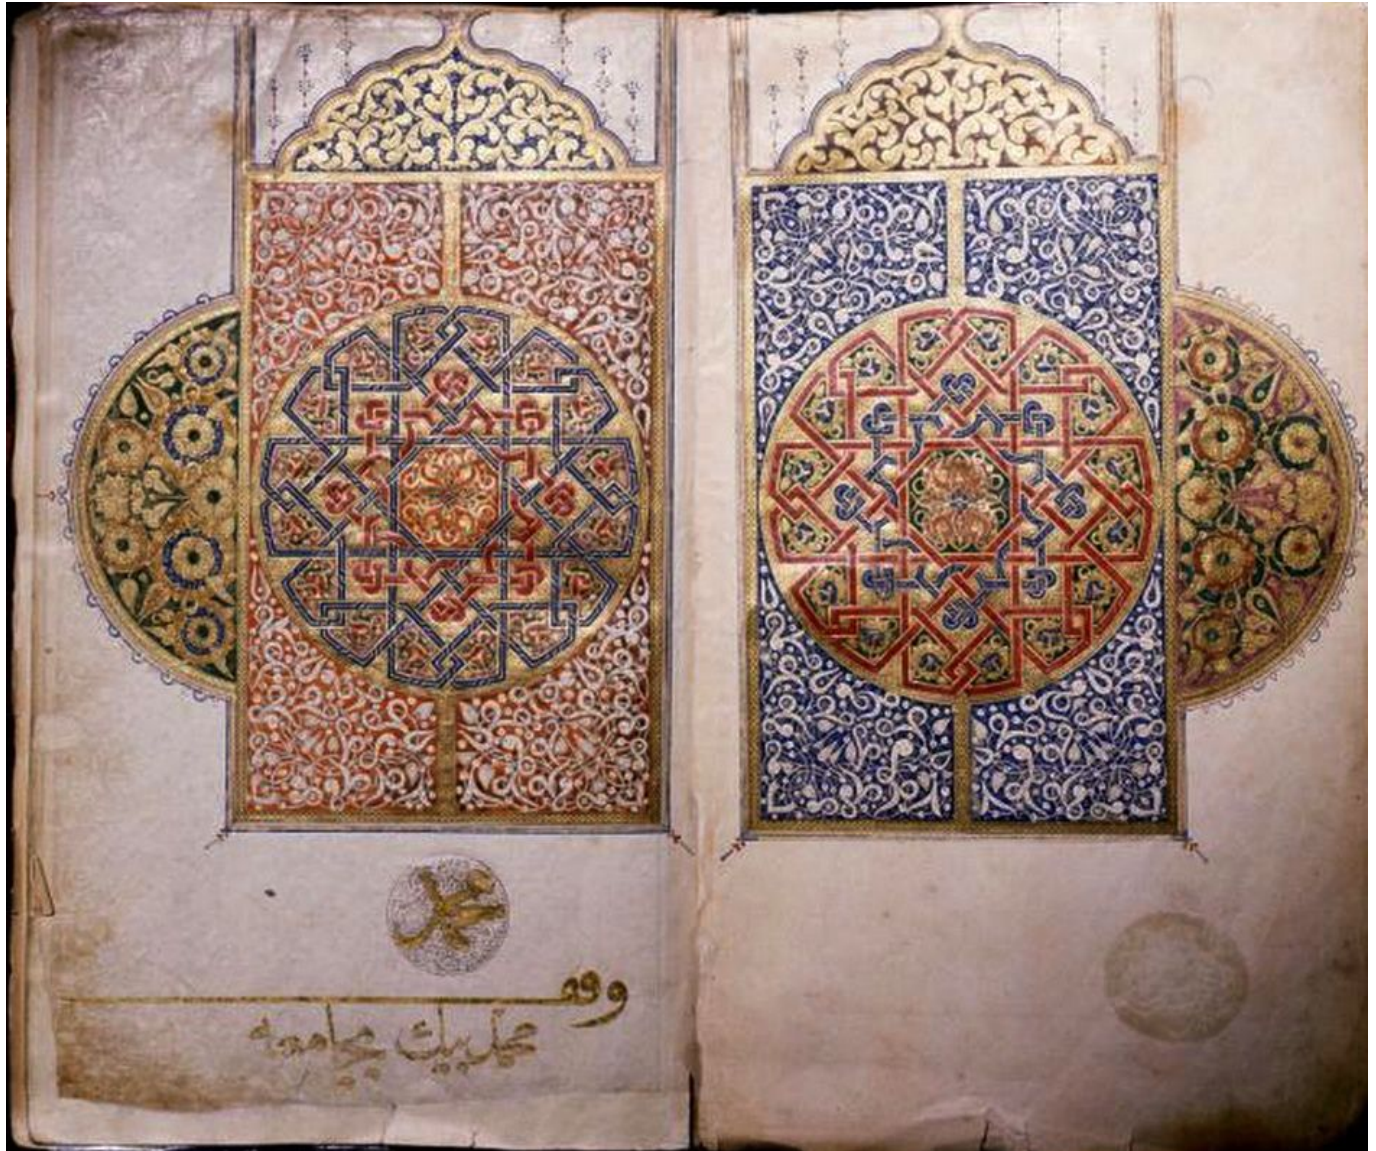 محمد
وقف
محمد بيك بجامعه